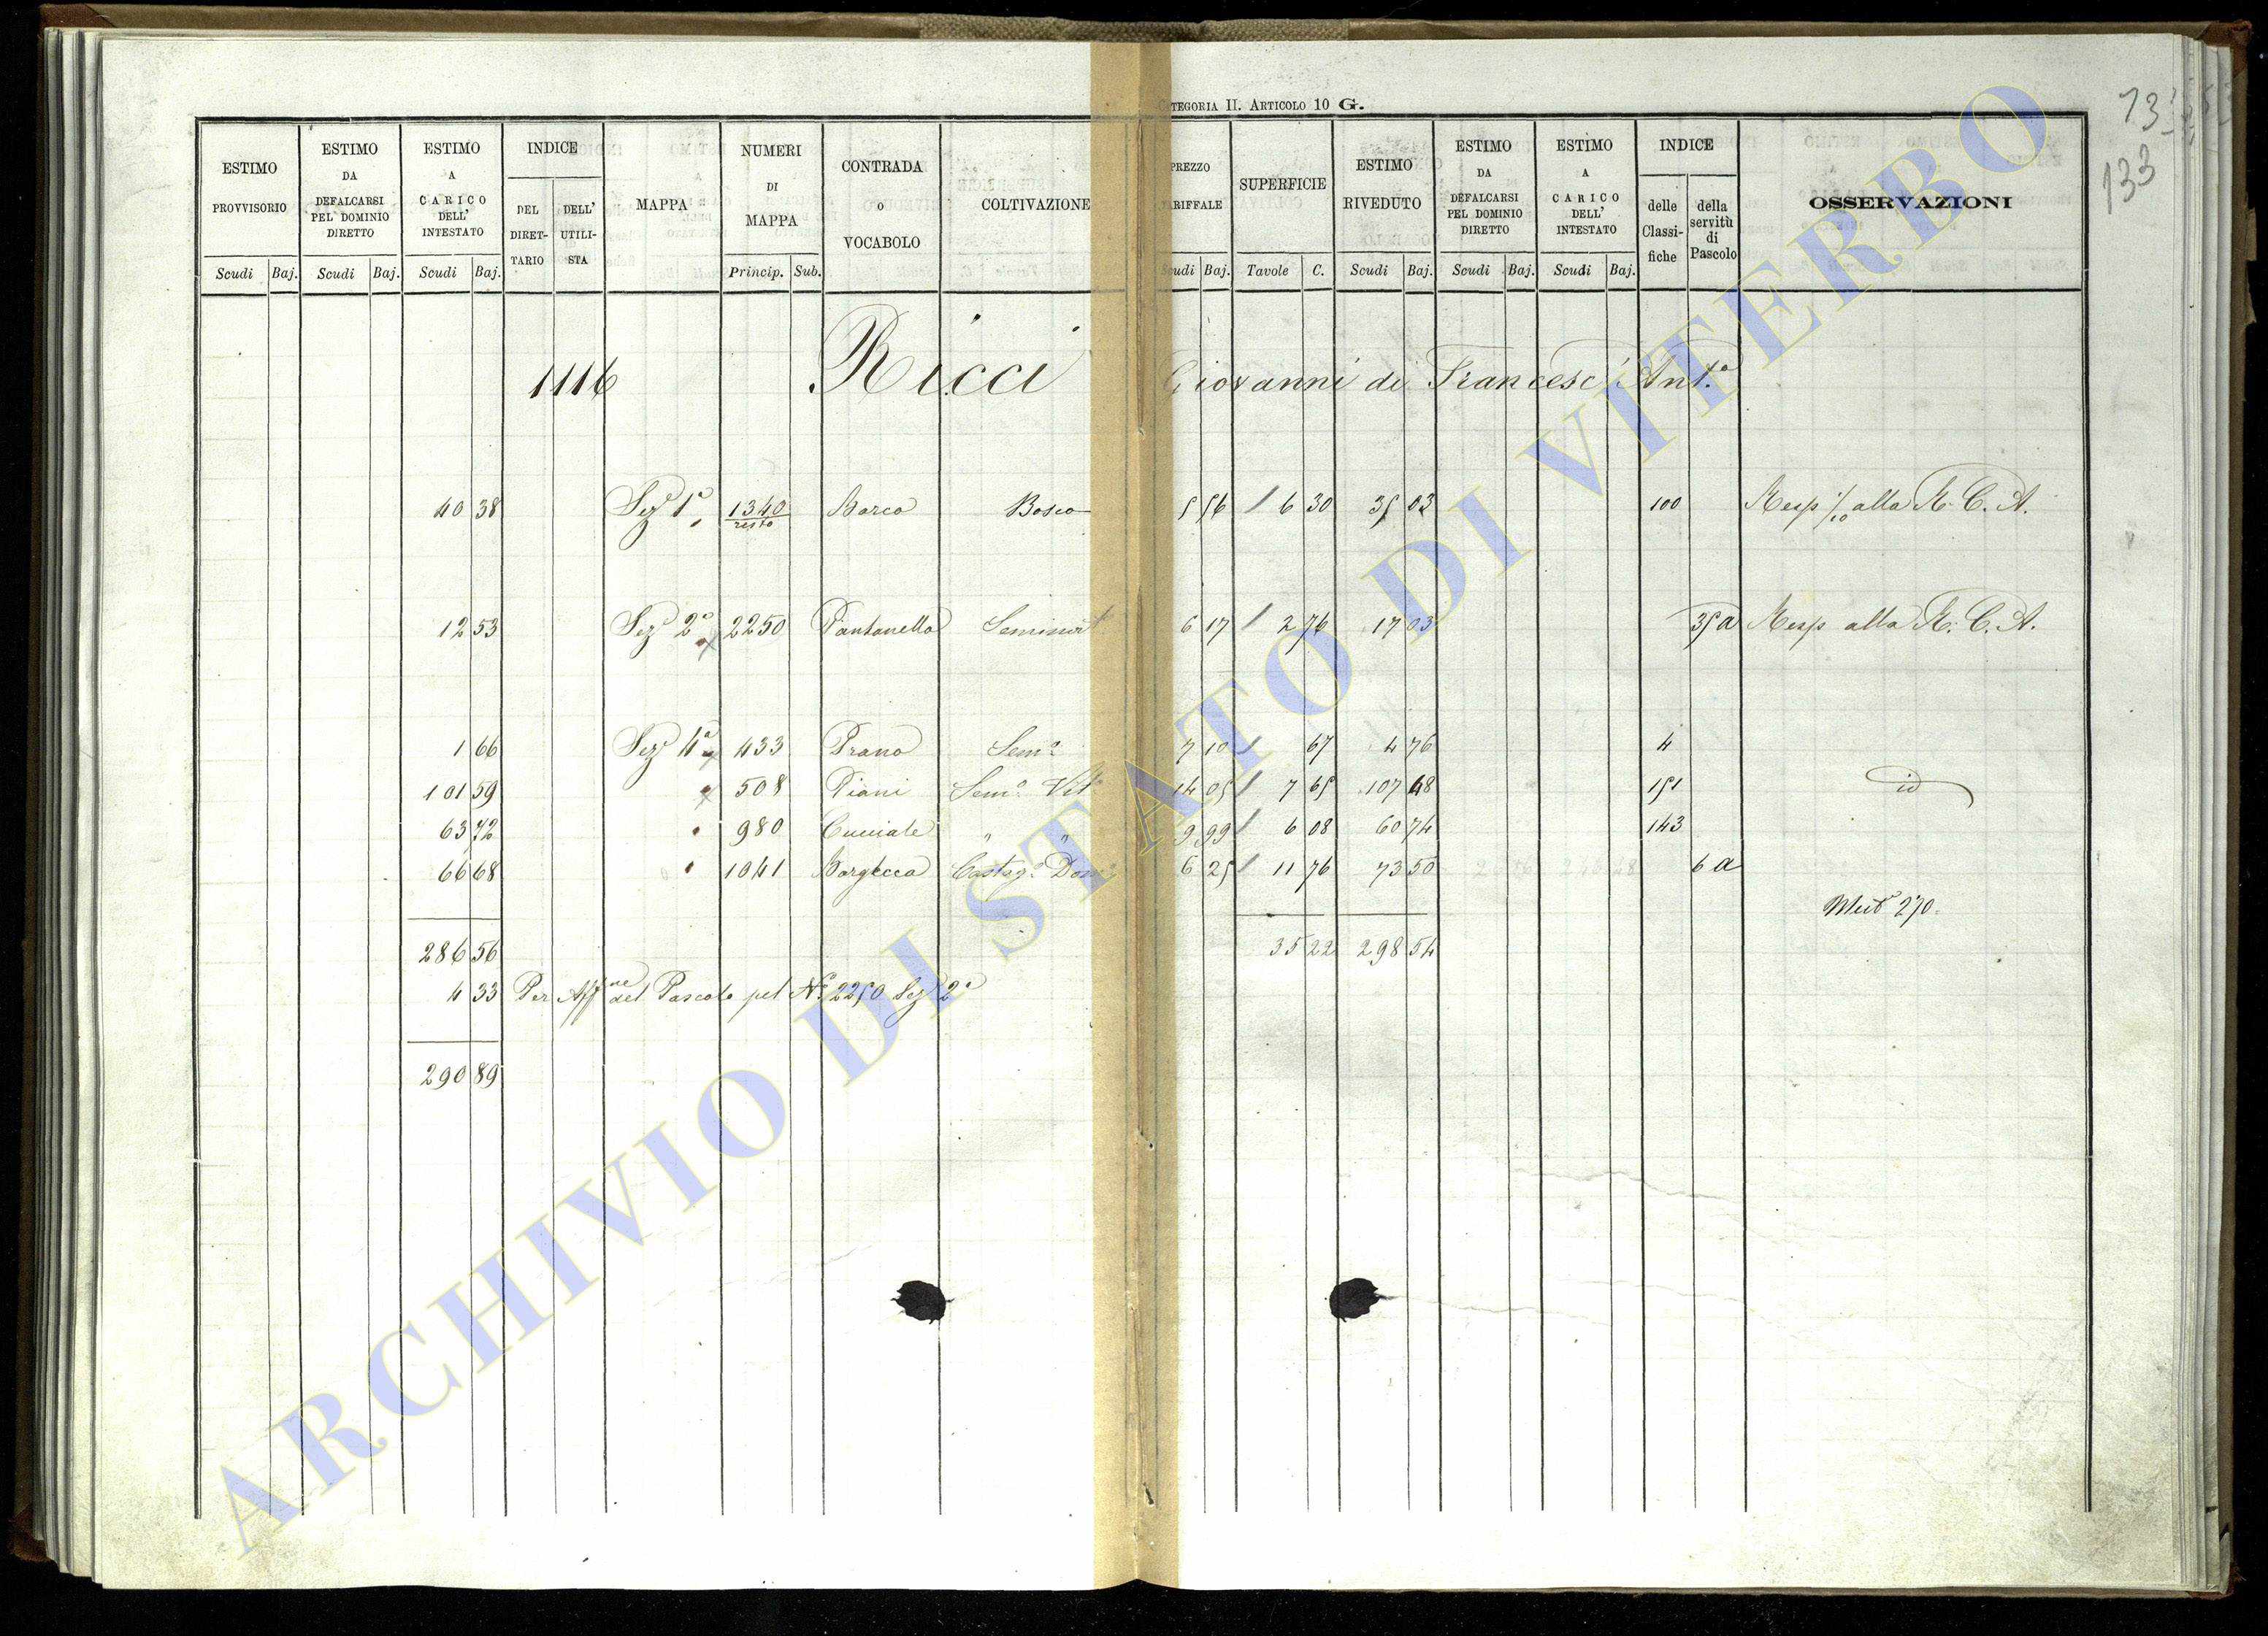 CATEGORIA II. ARTICOLO 10 G.
133
ESTIMO PROVVISORIO Scudi Baj.
ESTIMO DA DEFALCARSI PEL DOMINIO DIRETTO Scudi Baj.
ESTIMO A CARICO DELL' INTESTATO Scudi Baj.
INDICE DEL DIRETTARIO DELL' UTILISTA
MAPPA
NUMERI DI MAPPA Princip. Sub.
CONTRADA O VOCABOLO
COLTIVAZIONE
PREZZO TARIFFALE Scudi Baj.
SUPERFICIE Tavole C.
ESTIMO RIVEDUTO Scudi Baj.
ESTIMO DA DEFALCARSI PEL DOMINIO DIRETTO Scudi Baj.
ESTIMO A CARICO DELL' INTESTATO Scudi Baj.
INDICE delle Classifiche della servitù di Pascolo
OSSERVAZIONI
1116 Ricci Giovanni di Francesc' Ant.o
40 38 Sez 1a 1340 resto Barco Bosco 5 56 6 30 35 03 100 Resp 1/10 alla R. C. A.
12 53 Sez 2a 2250 Pantanella Seminat 6 17 2 76 17 03 35 a Resp alla R. C. A.
1 66 Sez 4a 433 Prano Sem.o 7 10 67 4 76 4
101 59 508 Piani Sem.o Vit 14 05 7 65 107 48 151 id
63 72 980 Cucciale " " 9 99 6 08 60 74 143
66 68 1041 Castag.o Dom 6 25 11 76 73 50 6 a
Mut 270.
286 56 35 22 298 54
4 33 Per Aff.ne del Pascolo pel N.o 2250 Sez 2a
290 89
ARCHIVIO DI STATO DI VITERBO